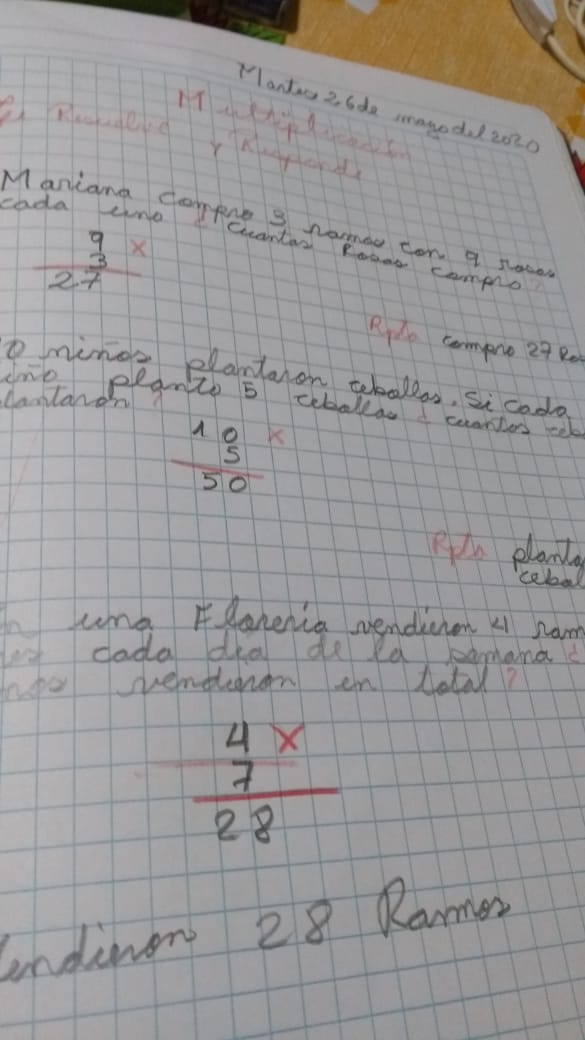 Martes 26 de mayo del 2020
Multiplicación
y Responde
Mariana compro 3 ramos con 9 rosas
cada uno ¿ cuantas Rosas compro?
9 x
3
27
Rpta compro 27 Ro
0 niños plantaron ceballas. Si cada
iño planto 5 ceballas ¿ cuantos ceb
lantaron?
10 x
5
50
Rpta planta
cebal
n una Floreria vendieron 4 ram
cada dia de la semana ¿
mos vendieron en total?
4 x
7
28
endieron 28 Ramos